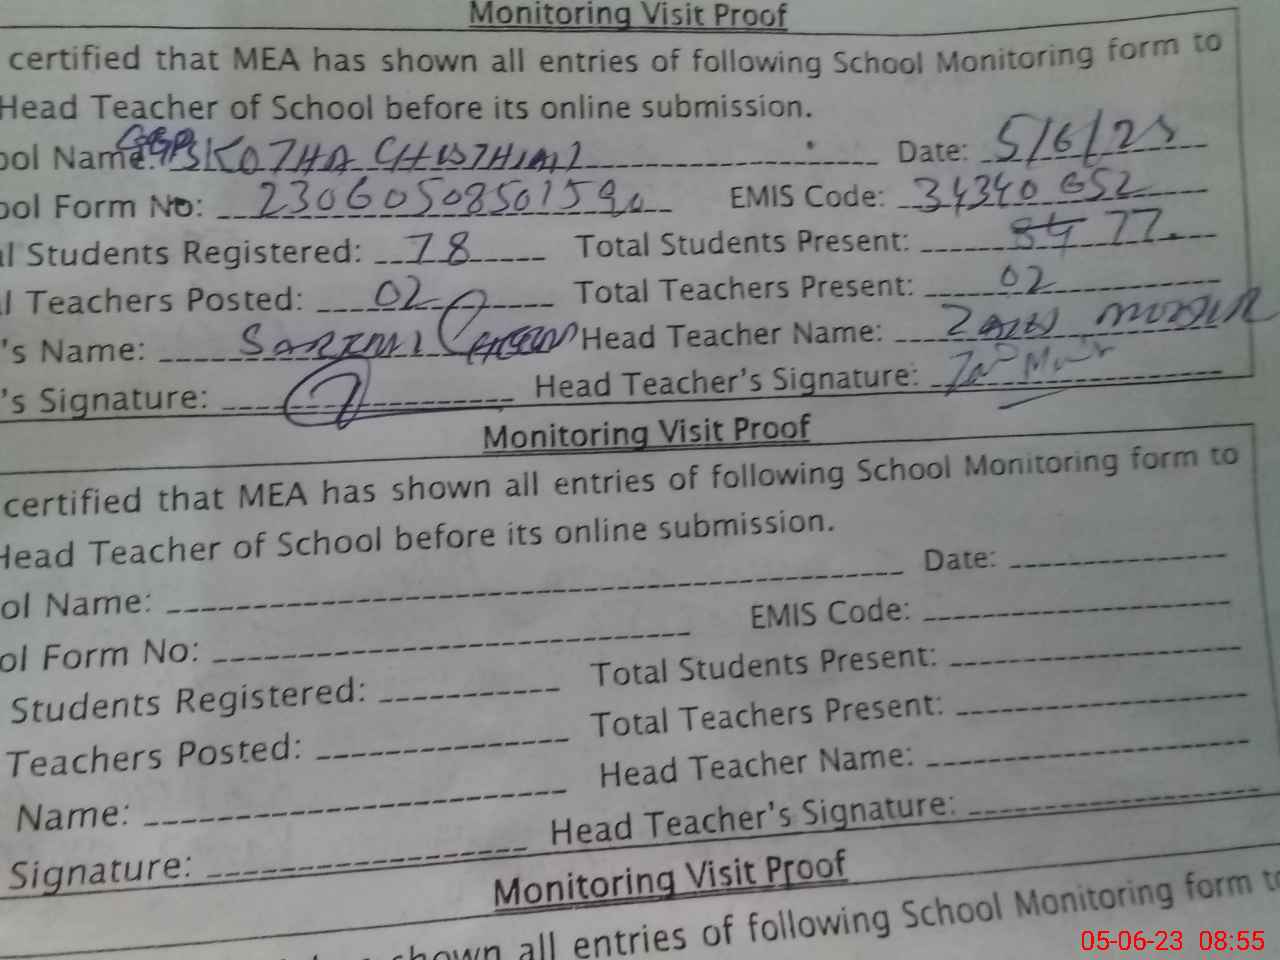 Monitoring Visit Proof
certified that MEA has shown all entries of following School Monitoring form to
Head Teacher of School before its online submission.
ool Name: KOTHA Date: 5/6/23
ool Form No: 2306050850159 EMIS Code: 34340652
al Students Registered: 78 Total Students Present: 84 77
al Teachers Posted: 02 Total Teachers Present: 02
's Name: Head Teacher Name:
's Signature: Head Teacher's Signature:
Monitoring Visit Proof
certified that MEA has shown all entries of following School Monitoring form to
Head Teacher of School before its online submission.
ol Name: Date:
ol Form No: EMIS Code:
Students Registered: Total Students Present:
Teachers Posted: Total Teachers Present:
Name: Head Teacher Name:
Signature: Head Teacher's Signature:
Monitoring Visit Proof
shown all entries of following School Monitoring form to
05-06-23 08:55